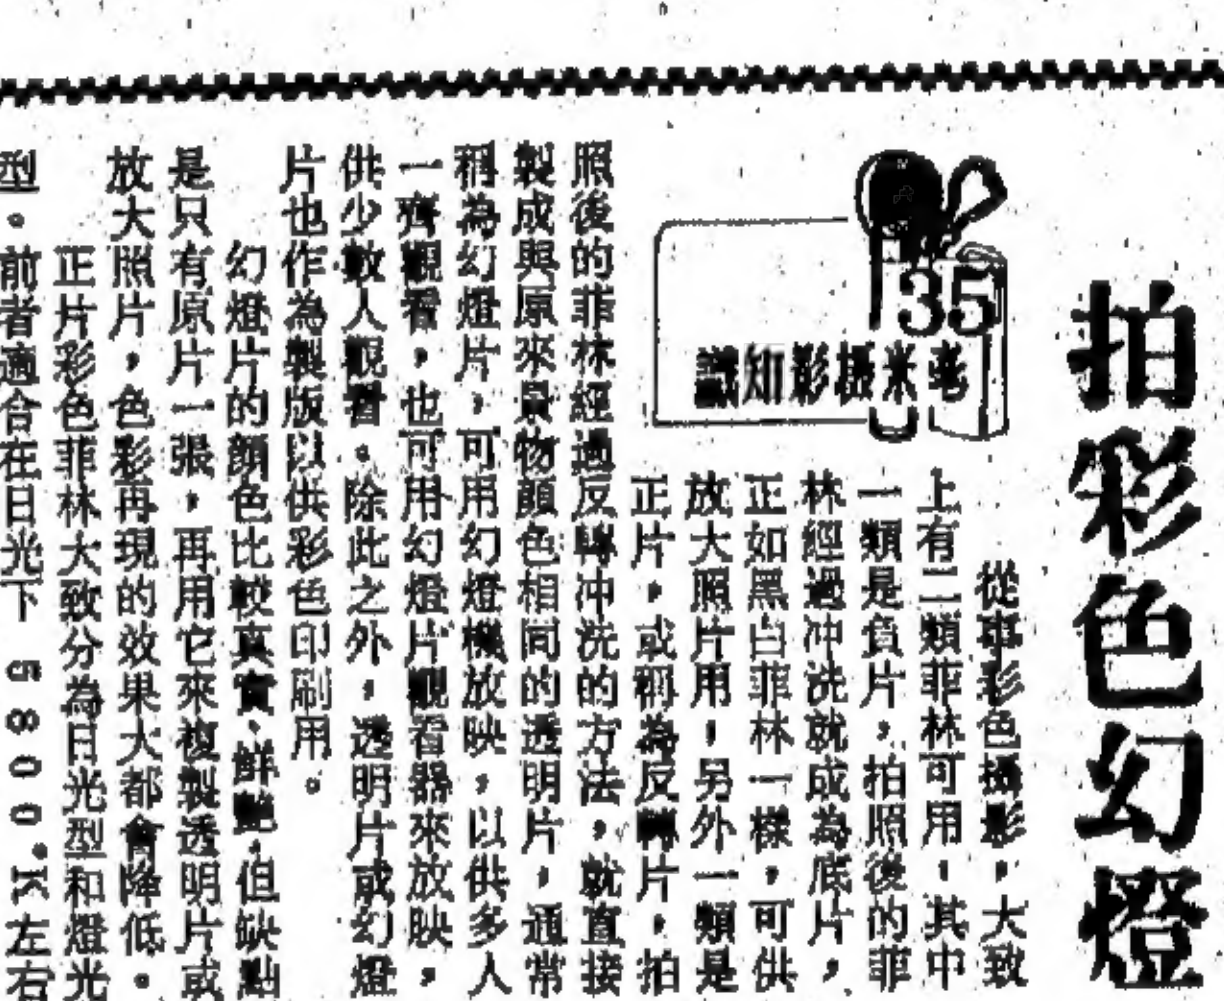 拍彩色幻燈
35
毫米攝影知識
從事彩色攝影，大致
上有二類菲林可用，其中
一類是負片，拍照後的菲
林經過冲洗就成為底片，
正如黑白菲林一樣，可供
放大照片用，另外一類是
正片，或稱為反轉片，拍
照後的菲林經過反轉冲洗的方法，就直接
製成與原來景物顏色相同的透明片，通常
稱為幻燈片，可用幻燈機放映，以供多人
一齊觀看，也可用幻燈片觀看器來放映，
供少數人觀看。除此之外，透明片或幻燈
片也作為製版以供彩色印刷用。
幻燈片的顏色比較真實、鮮艷，但缺點
是只有原片一張，再用它來複製透明片或
放大照片，色彩再現的效果大都會降低。
正片彩色菲林大致分為日光型和燈光
型。前者適合在日光下5800°K左右